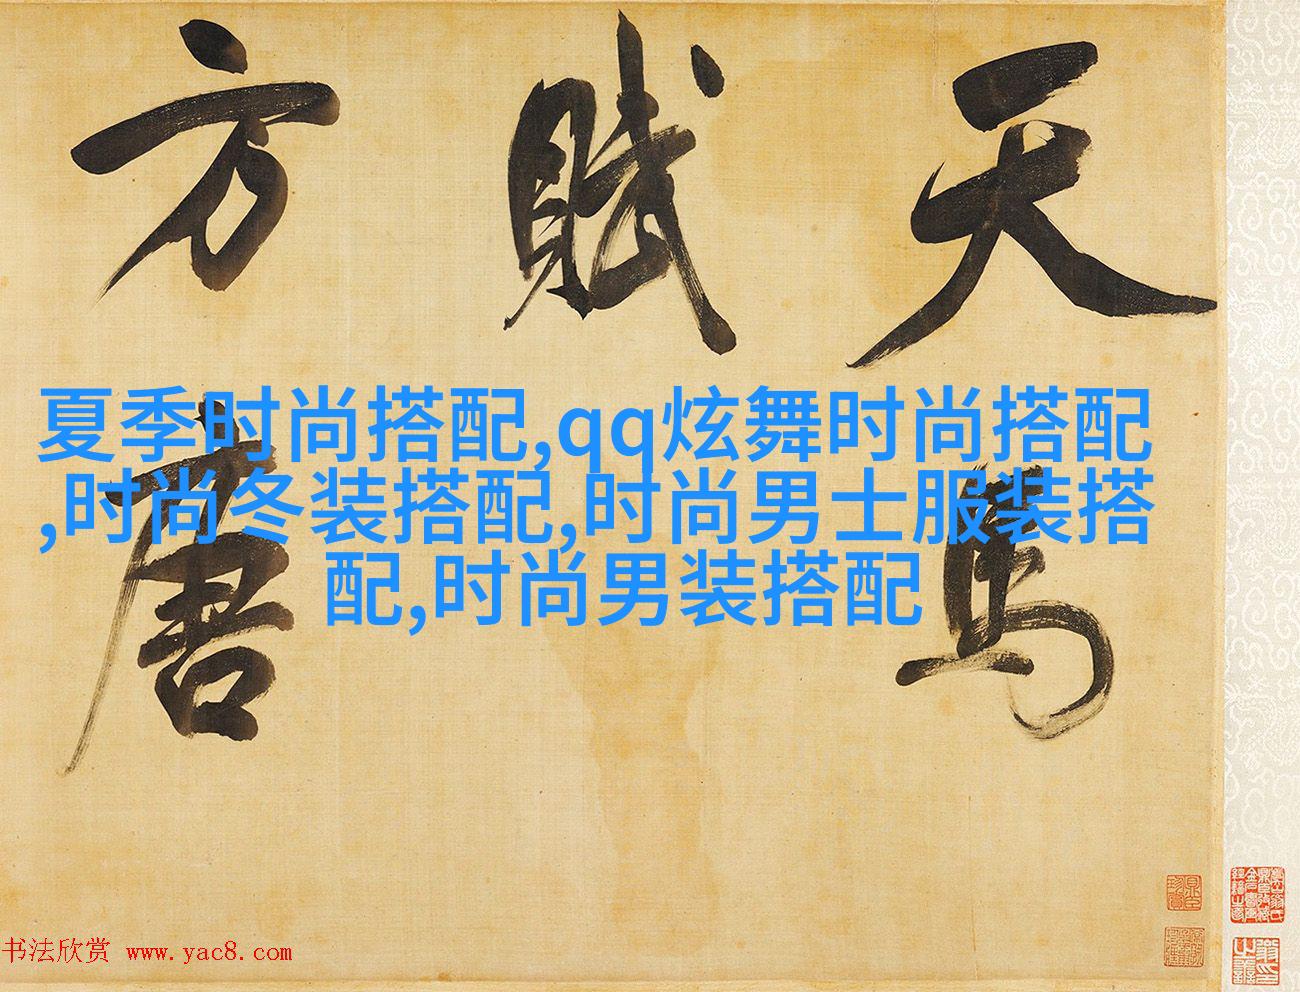 天馬
賦
方唐
夏季时尚搭配,qq炫舞时尚搭配
,时尚冬装搭配,时尚男士服装搭
配,时尚男装搭配
书法欣赏 www.yac8.com